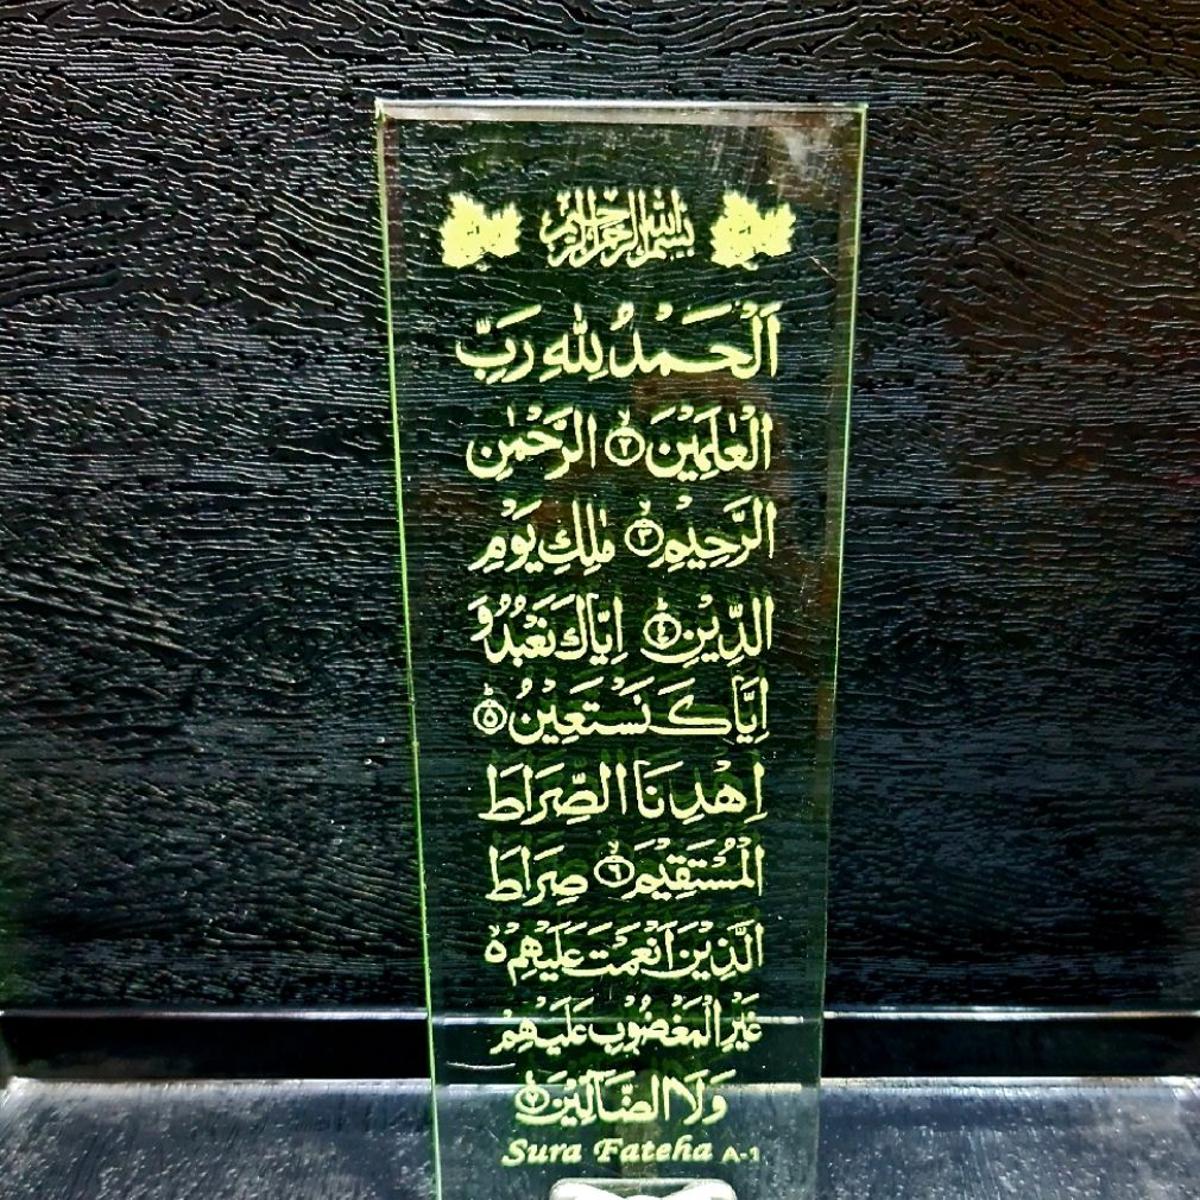 بسم الله الرحمن الرحيم
اَلْحَمْدُ لِلّٰهِ رَبِّ
الْعٰلَمِيْنَ ۙ﴿٢﴾ الرَّحْمٰنِ
الرَّحِيْمِ ۙ﴿٣﴾ مٰلِكِ يَوْمِ
الدِّيْنِ ؕ﴿٤﴾ اِيَّاكَ نَعْبُدُ وَ
اِيَّاكَ نَسْتَعِيْنُ ؕ﴿٥﴾
اِهْدِنَا الصِّرَاطَ
الْمُسْتَقِيْمَ ۙ﴿٦﴾ صِرَاطَ
الَّذِيْنَ اَنْعَمْتَ عَلَيْهِمْ ۙ۬
غَيْرِ الْمَغْضُوْبِ عَلَيْهِمْ
وَلَا الضَّآلِّيْنَ ﴿٧﴾
Sura Fateha A-1